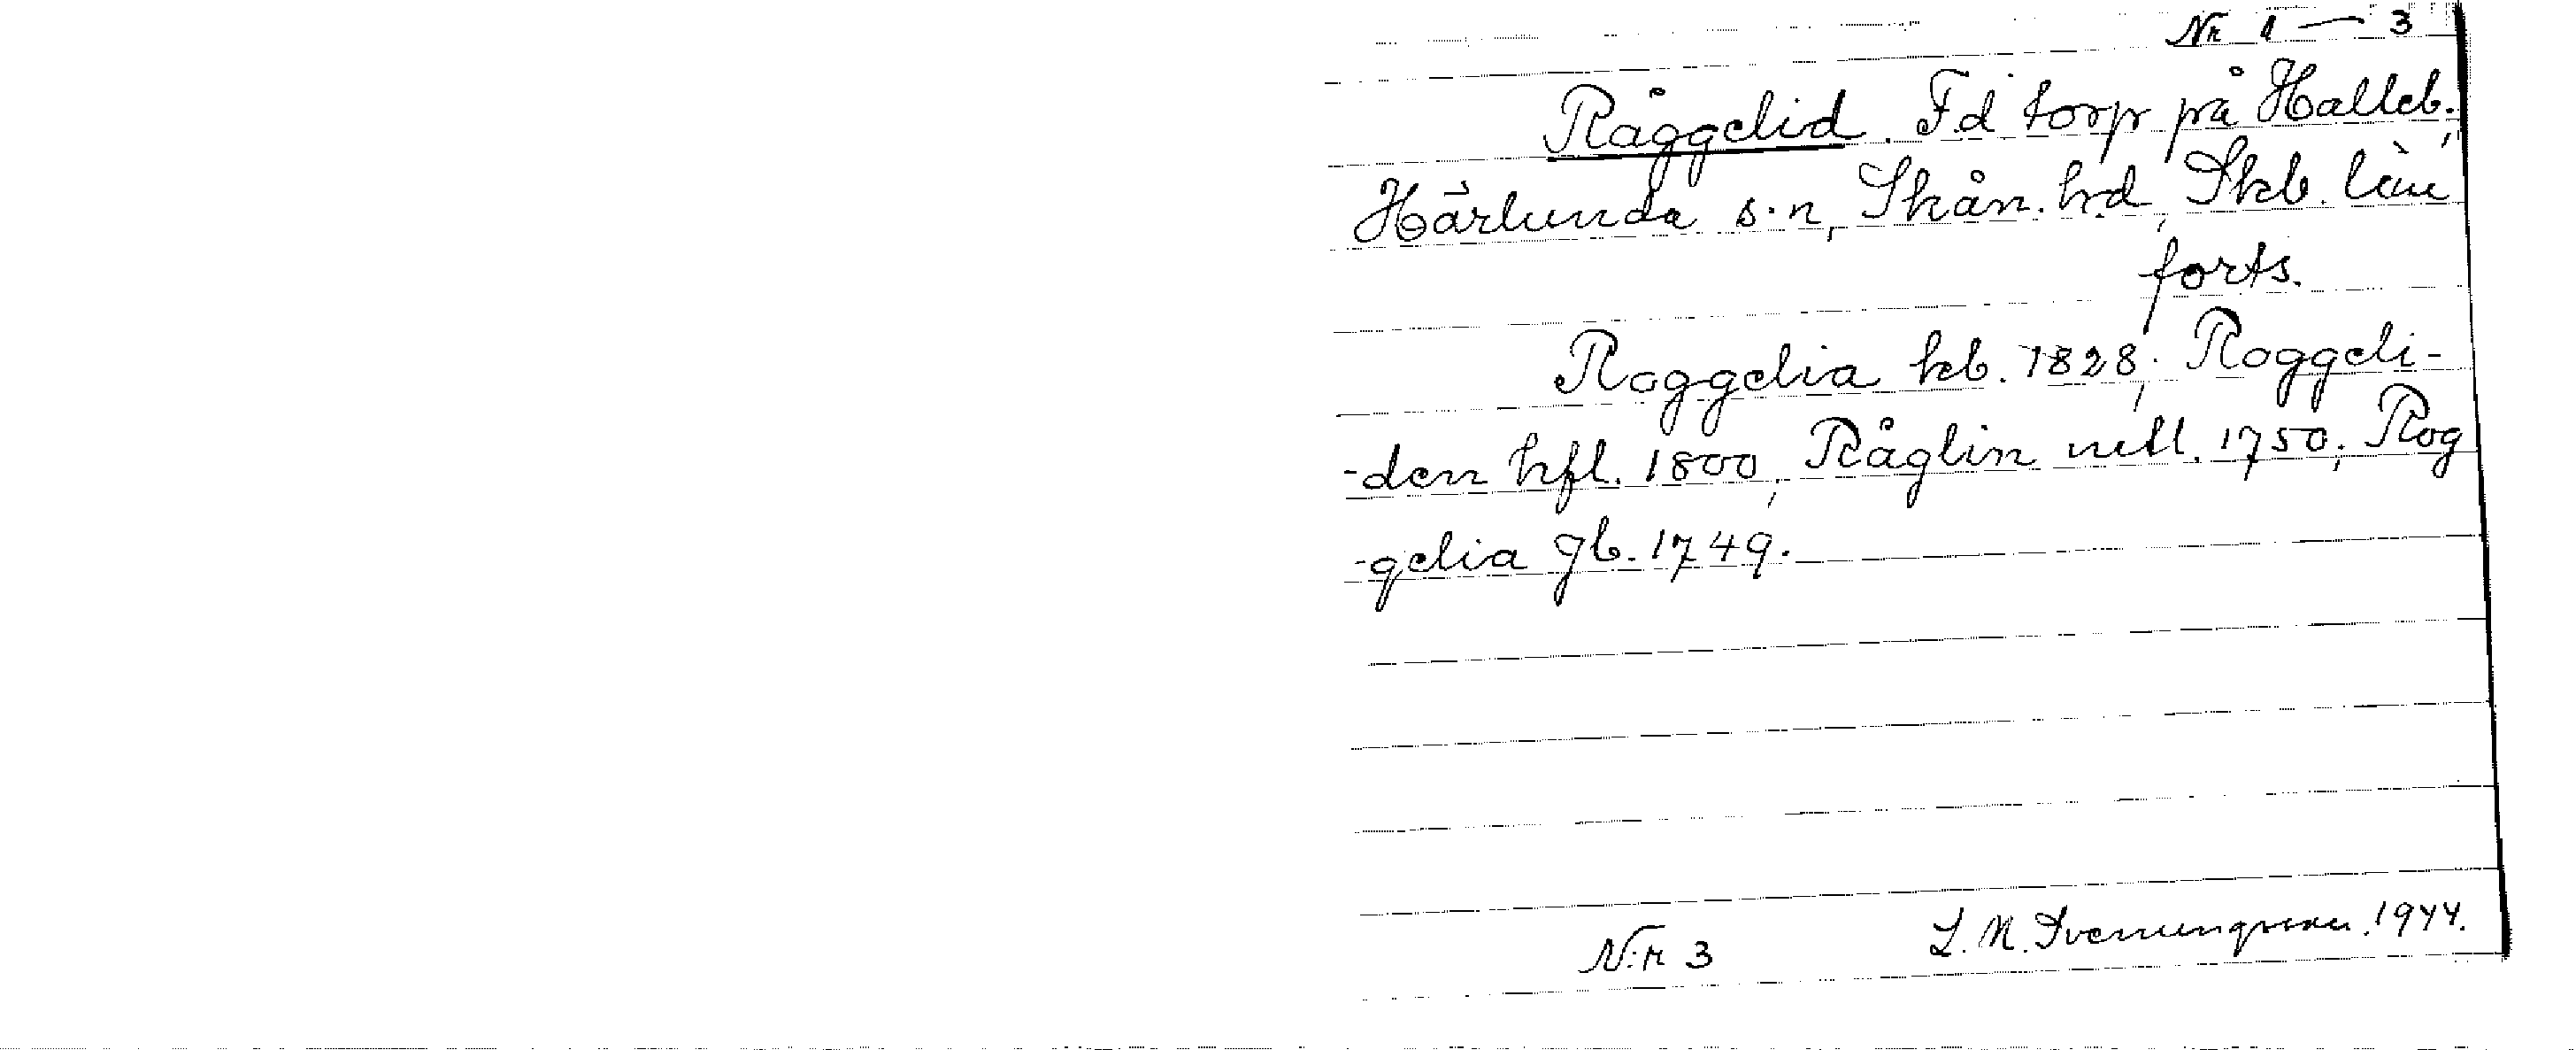 Nr 1 — 3
Råggelid. F.d torp på Halleb.,
Härlunda s.n, Skån. h.d, Skb. län
forts.
Roggelia kb. 1828; Roggeli-
-den hfl. 1800; Råglin mtl. 1750; Rog
-gelia gb. 1749.
N:r 3 L. M. Svenungsson. 1944.